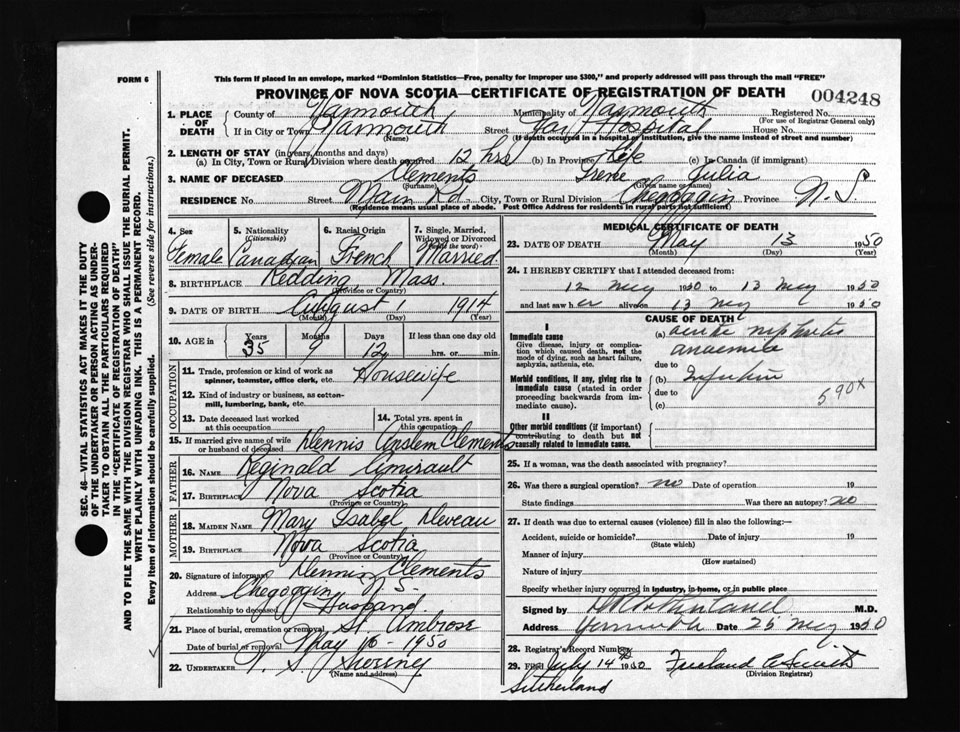 FORM 6
This form if placed in an envelope, marked "Dominion Statistics—Free, penalty for improper use $300," and properly addressed will pass through the mail "FREE"
PROVINCE OF NOVA SCOTIA—CERTIFICATE OF REGISTRATION OF DEATH
004248
1. PLACE OF DEATH County of Yarmouth Municipality of Yarmouth Registered No.
(For use of Registrar General only)
If in City or Town Yarmouth Street Hospital House No.
(Name) (If death occurred in a hospital or institution, give the name instead of street and number)
2. LENGTH OF STAY (in years, months and days)
(a) In City, Town or Rural Division where death occurred 12 hrs (b) In Province Life (c) In Canada (if immigrant)
3. NAME OF DECEASED Clements Irene Julia
(Surname) (Given name or names)
RESIDENCE No. Street Main Rd. City, Town or Rural Division Chegoggin Province N. S.
(Residence means usual place of abode. Post Office Address for residents in rural parts not sufficient)
4. Sex Female
5. Nationality (Citizenship) Canadian
6. Racial Origin French
7. Single, Married, Widowed or Divorced (Write the word.) Married
8. BIRTHPLACE Redding Mass.
(Province or Country)
9. DATE OF BIRTH August 1914
(Month) (Day) (Year)
10. AGE in Years 35 Months 9 Days 12 If less than one day old hrs. or min.
OCCUPATION
11. Trade, profession or kind of work as spinner, teamster, office clerk, etc. Housewife
12. Kind of industry or business, as cotton-mill, lumbering, bank, etc.
13. Date deceased last worked at this occupation
14. Total yrs. spent in this occupation
15. If married give name of wife or husband of deceased Dennis Anslem Clements
FATHER
16. NAME Reginald Amirault
17. BIRTHPLACE Nova Scotia
(Province or Country)
MOTHER
18. MAIDEN NAME Mary Isabel Deveau
19. BIRTHPLACE Nova Scotia
(Province or Country)
20. Signature of informant Dennis Clements
Address Chegoggin N S
Relationship to deceased Husband.
21. Place of burial, cremation or removal St. Ambrose
Date of burial or removal May 16 - 1950
22. UNDERTAKER V. S. Sweeny
(Name and address)
MEDICAL CERTIFICATE OF DEATH
23. DATE OF DEATH May 13 1950
(Month) (Day) (Year)
24. I HEREBY CERTIFY that I attended deceased from:
12 May 1950 to 13 May 1950
and last saw her alive on 13 May 1950
CAUSE OF DEATH
I
Immediate cause
Give disease, injury or complication which caused death, not the mode of dying, such as heart failure, asphyxia, asthenia, etc.
(a) acute nephritis
anaemia
due to
Morbid conditions, if any, giving rise to immediate cause (stated in order proceeding backwards from immediate cause).
(b)
due to
590x
(c)
II
Other morbid conditions (if important) contributing to death but not causally related to immediate cause.
25. If a woman, was the death associated with pregnancy?
26. Was there a surgical operation? no Date of operation 19
State findings Was there an autopsy? no
27. If death was due to external causes (violence) fill in also the following:—
Accident, suicide or homicide? Date of injury 19
(State which)
Manner of injury
(How sustained)
Nature of injury
Specify whether injury occurred in industry, in home, or in public place
Signed by M.D.
Address Yarmouth Date 25 May 1950
28. Registrar's Record Number
29. Filed July 14 1950 Freeland C. Smith
(Division Registrar)
Sutherland
SEC. 46—VITAL STATISTICS ACT MAKES IT THE DUTY
OF THE UNDERTAKER OR PERSON ACTING AS UNDER-
TAKER TO OBTAIN ALL THE PARTICULARS REQUIRED
IN THE "CERTIFICATE OF REGISTRATION OF DEATH"
AND TO FILE THE SAME WITH THE DIVISION REGISTRAR WHO SHALL ISSUE THE BURIAL PERMIT.
WRITE PLAINLY WITH UNFADING INK. THIS IS A PERMANENT RECORD.
Every item of information should be carefully supplied. (See reverse side for instructions.)